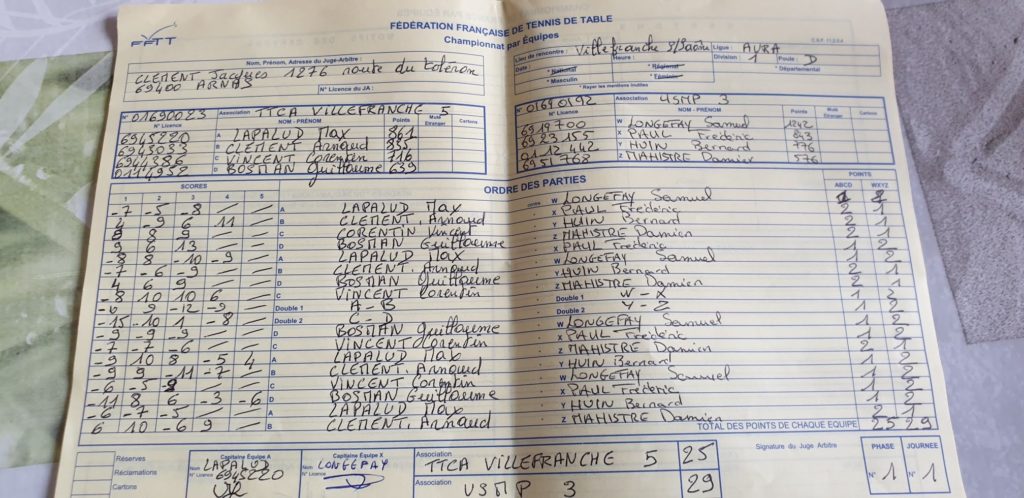 FFTT
FÉDÉRATION FRANÇAISE DE TENNIS DE TABLE
Championnat par Équipes
Nom, Prénom, Adresse du Juge-Arbitre :
CLEMENT Jacques 1276 route du
69400 ARNAS
N° Licence du JA :
Lieu de rencontre : Villefranche s/Saône Ligue : AURA
Date : Heure : Division : 1 Poule : D
* National * Régional * Départemental
* Masculin * Féminin
* Rayer les mentions inutiles
N° 01690023 Association TTCA VILLEFRANCHE 5
N° Licence NOM - PRÉNOM Points Muté Etranger Cartons
6945220 A LAPALUD Max 861
B CLEMENT Arnaud 835
6944386 C VINCENT Corentin 716
D BOSMAN Guillaume 639
N° 01690192 Association USMP 3
N° Licence NOM - PRÉNOM Points Muté Etranger Cartons
6919700 W LONGEFAY Samuel 1242
X PAUL Frédéric 843
Y HUIN Bernard 776
6951768 Z MAHISTRE Damien 576
SCORES ORDRE DES PARTIES POINTS
1 2 3 4 5 ABCD WXYZ
-7 -5 -8 A LAPALUD Max contre W LONGEFAY Samuel
4 -9 6 11 B CLEMENT. Arnaud X PAUL Frédéric 2 1
8 8 9 C CORENTIN Vincent Y HUIN Bernard 2 1
9 6 13 D BOSMAN Guillaume Z MAHISTRE Damien 2 1
-8 -8 -10 -9 A LAPALUD Max X PAUL Frédéric 1 2
-7 -6 -9 B CLEMENT. Arnaud W LONGEFAY Samuel 1 2
4 6 9 D BOSMAN Guillaume Y HUIN Bernard 2 1
-8 10 10 6 C VINCENT Corentin Z MAHISTRE Damien 2 1
-6 9 -12 -9 Double 1 A - B Double 1 W - X
-15 -10 1 -8 Double 2 C - D Double 2 Y - Z
-9 -9 -9 D BOSMAN Guillaume W LONGEFAY Samuel 1 2
-7 -7 -6 C VINCENT Corentin X PAUL Frédéric 1 2
-9 10 8 -5 4 A LAPALUD Max Z MAHISTRE Damien 2 1
-9 9 -11 -7 B CLEMENT. Arnaud Y HUIN Bernard 1 2
-6 -5 C VINCENT Corentin W LONGEFAY Samuel 1 2
-11 8 6 -3 -6 D BOSMAN Guillaume X PAUL Frédéric 1 2
-6 -7 -5 A LAPALUD Max Y HUIN Bernard 1 2
6 10 -6 9 B CLEMENT. Arnaud Z MAHISTRE Damien 2 1
TOTAL DES POINTS DE CHAQUE EQUIPE 25 29
Réserves
Réclamations
Cartons
Capitaine Équipe A
Nom LAPALUD
N° Licence 6945220
Capitaine Équipe X
Nom LONGEFAY
N° Licence
Association TTCA VILLEFRANCHE 5 25
Association USMP 3 29
Signature du Juge Arbitre
PHASE JOURNEE
N° 1 N° 1